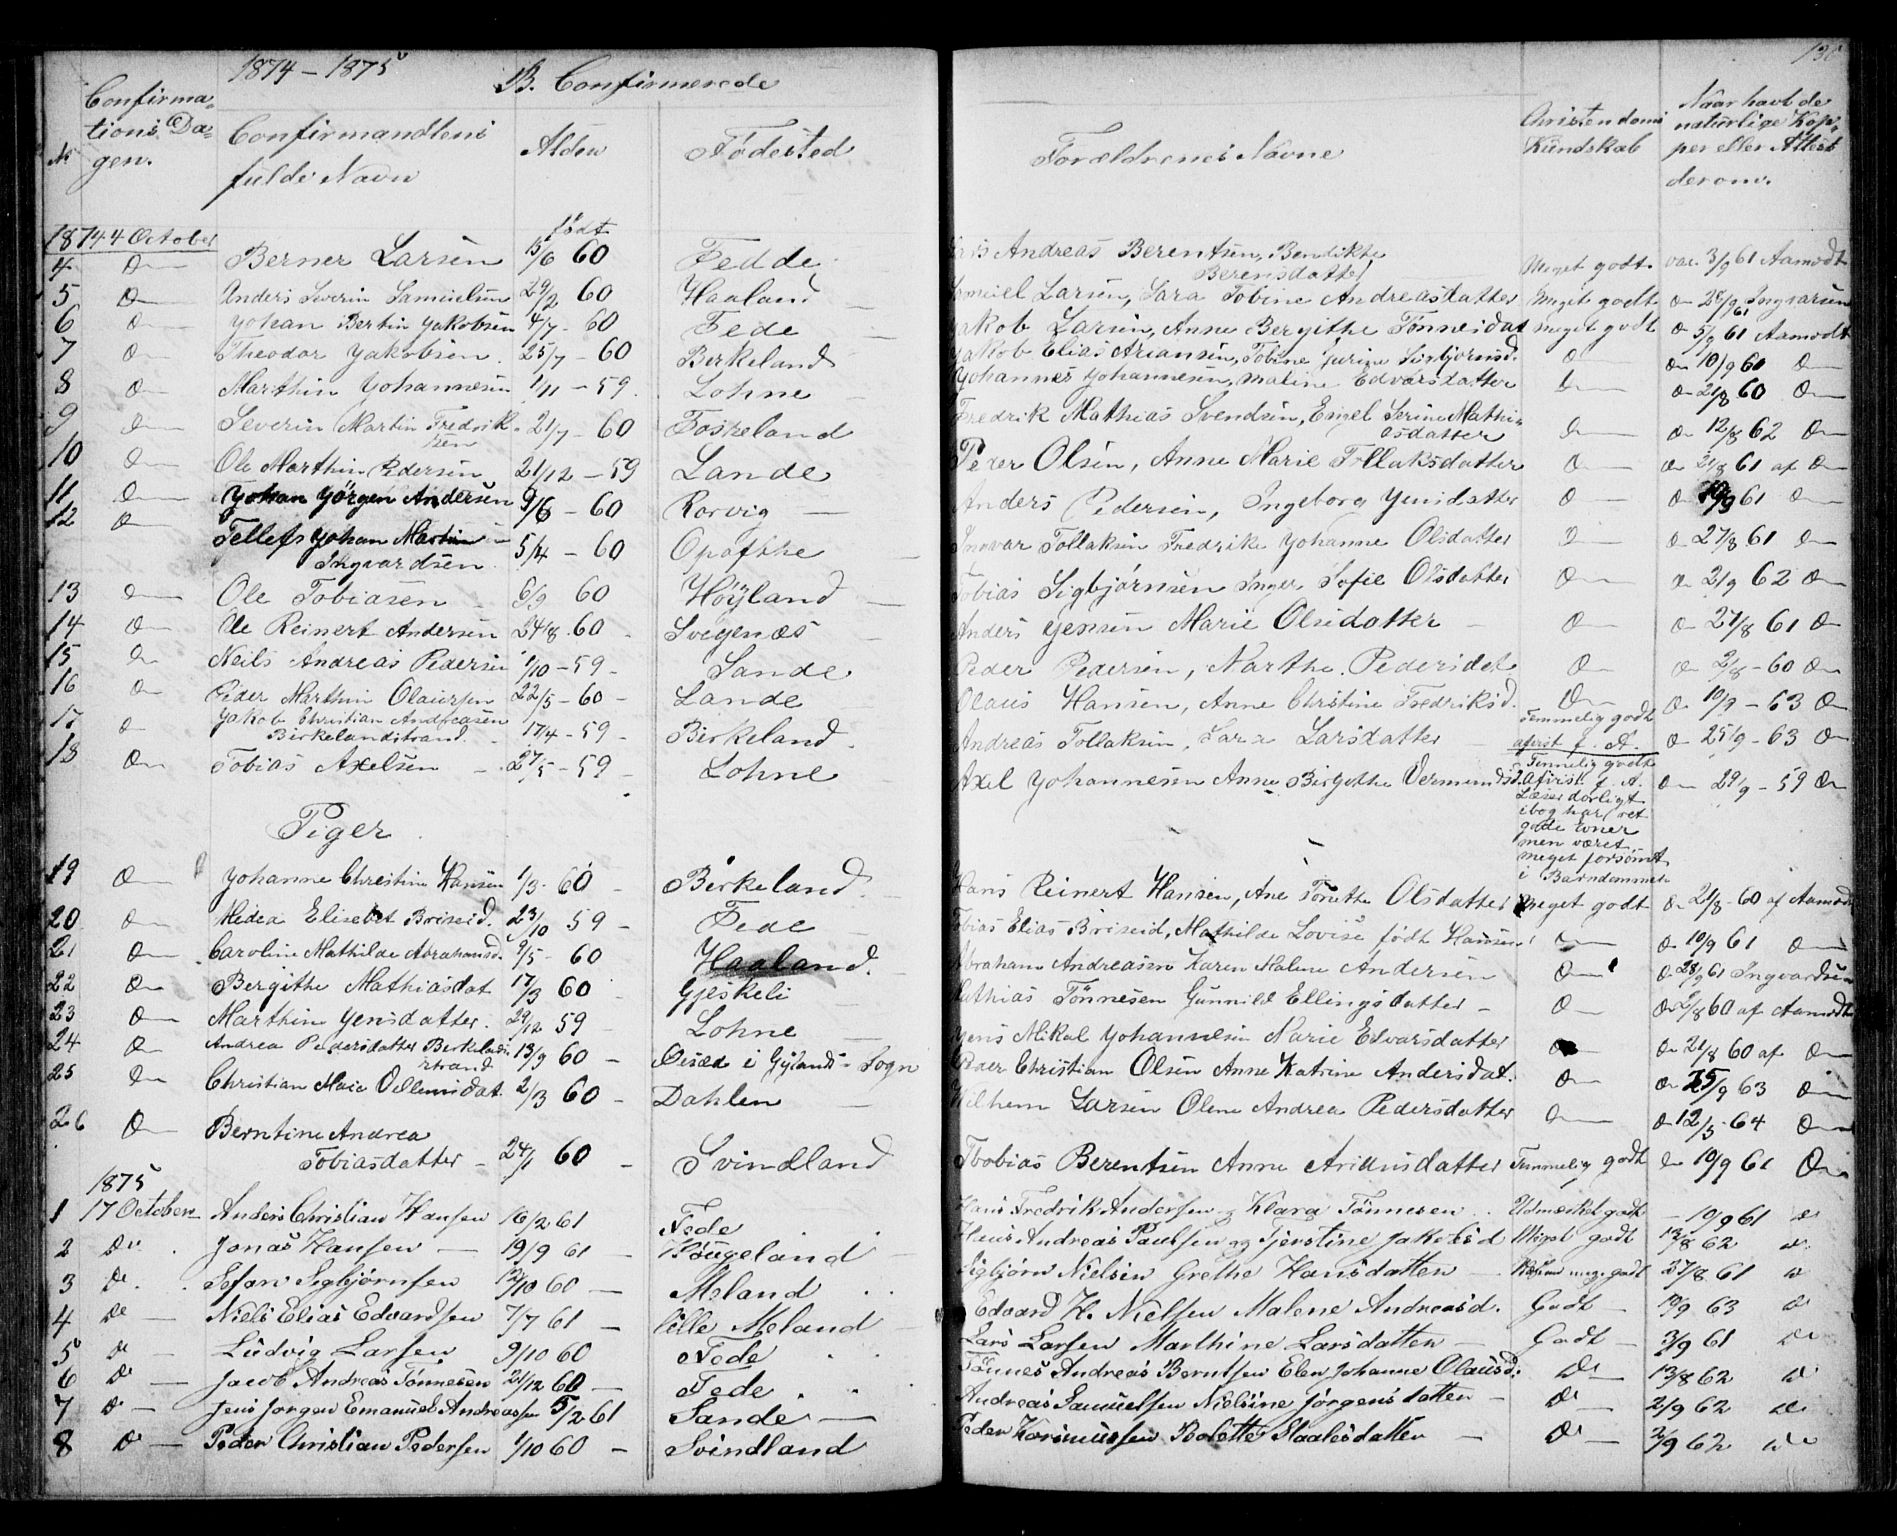 1874 - 1875
B. Confirmerede
130
No
Confirma-
tions Da-
gen.
Confirmandtens
fulde Navn
Alder
Fødested
Forældrenes Navne
Christendoms
Kundskab
Naar havt de
naturlige Kop-
per eller Attest
derom.
1874 4 October
født
4 Do Berner Larsen 15/6 60 Fedde Andreas Berentsen, Bendikte Berensdatter Meget godt vac. 3/9 61 Aamodt
5 Do Anders Severin Samuelsen 29/2 60 Haaland Samuel Larsen, Sara Tobine Andreasdatter Meget godt Do 28/9 61 Ingvarsen
6 Do Yohan Bertin Yakobsen 4/7 - 60 Fede Yakob Larsen, Anne Bergithe Tønnesdat meget godt Do 5/9 61 Aamodt
7 Do Theodor Yakobsen 25/7 - 60 Birkeland Yakob Elias Ariansen, Tobine Jurine Sigbjørnsd. Do Do 10/9 60 Do
8 Do Marthin Yohannesen 1/11 - 59 Lohne Yohannes Yohannesen, Maline Edvarsdatter Do Do 21/8 60 Do
9 Do Severin Martin Fredrik-
sen 21/7 - 60 Foskeland Fredrik Mathias Svendsen, Engel Serine Mathi-
asdatter Do Do 12/8 62 Do
10 Do Ole Marthin Pedersen 21/12 - 59 Sande Peder Olsen, Anne Marie Tollaksdatter Do Do 21/8 61 af Do
11 Do Yohan Yörgen Andersen 9/6 - 60 Rorvig Anders Pedersen, Ingeborg Yensdatter Do Do 10/9 61 Do
12 Do Tellefs Yohan Martin
Ingvardsen 5/4 - 60 Opofthe Ingvar Tollaksen Fredrike Yohanne Olsdatter Do Do 27/8 61 Do
13 Do Ole Tobiasen 6/9 60 Höyland Tobias Sigbjørnsen Inger Sofie Olsdatter Do Do 2/9 62 Do
14 Do Ole Reinert Andersen 24/8 60 Svegenæs Anders Yensen Marie Olsdatter Do Do 27/8 61 Do
15 Do Neils Andreas Pedersen 1/10 - 59 Sande Peder Pedersen, Marthe Pedersdat Do Do 2/8 - 60 Do
16 Do Peder Marthin Olaussen 22/5 - 60 Sande Olaus Hansen, Anne Christine Fredriksd. Do Do 10/9 - 63 Do
17 Do Yakob Christian Andreasen
Birkelandstrand 17/4 - 59 Birkeland Andreas Tollaksen, Sara Larsdatter Temmelig godt
afvist f. A. Do 25/9 - 63 Do
18 Do Tobias Axelsen 27/5 - 59 Lohne Axel Yohannesen Anne Birgithe Vermundsd. Temmelig godt
Afvist f. A.
Læser dorligt
i bog har ret
gode Evner
men været
meget forsömt
i Barndommen Do 29/9 - 59 Do
Piger
19 Do Yohanne Christine Hansen 1/3 - 60 Birkeland Hans Reinert Hansen, Ane Tonette Olsdatter Meget godt Do 21/8 - 60 af Aamodt
20 Do Medea Elisebet Briseid 23/10 59 Fede Tobias Elias Briseid, Mathilde Lovise født Hansen Do Do 10/9 61 Do
21 Do Caroline Mathilde Abrahamsd. 9/5 - 60 Haaland Abraham Andreasen Karen Malene Andersen Do Do 28/9 61 Ingvardsen
22 Do Bergithe Mathiasdat 17/3 60 Gjeskeli Mathias Tönnesen Gunnild Ellingsdatter Do Do 2/8 60 af Aamodt
23 Do Marthine Yensdatter 29/12 59 Lohne Yens Mikal Yohannesen Marie Edvarsdatter Do Do 21/8 60 af Do
24 Do Andrea Pedersdatter Birkelands-
strand 13/9 60 i Gylands Sogn Peder Christian Olsen Anne Katrine Andersdat. Do Do 25/9 63 Do
25 Do Christian Marie Vellemsdat 2/3 60 Dahlen Wilhem Larsen Olene Andrea Pedersdatter Do Do 12/5 - 64 Do
26 Do Berntine Andrea
Tobiasdatter 24/1 60 Svindland Thobias Berentsen Anne Ariansdatter Temmelig godt Do 19/9 61 Do
1875
1 17 October Anders Christian Hansen 16/2 61 Fede Hans Fredrik Andersen og Klara Tönnesen Udmærket godt - 10/9 61 Do
2 Do Jonas Hansen 19/9 61 Höugeland Hans Andreas Paulsen og Tjerstine Jakobsd Meget godt 12/8 62 Do
3 Do Sefan Sigbjørnsen 12/10 60 Meland Sigbjørn Nielsen Grethe Hansdatter meget godt 27/8 61 Do
4 Do Niels Elias Edvardsen 7/7 61 lille Meland Edvard H. Nielsen Malene Andreasd. Godt 19/9 63 Do
5 Do Ludvig Larsen 9/10 60 Fede Lars Larsen Marthine Larsdatter Godt 3/9 61 Do
6 Do Jacob Andreas Tönnesen 21/12 60 Fede Tönnes Andreas Berntsen Elen Johanne Olausd. Do 13/8 62 Do
7 Do Jens Jorgen Emanuel Andreassen 5/2 61 Sande Andreas Samuelsen Nielsine Jörgensdatter Do 2/9 62 Do
8 Do Peder Christian Pedersen 1/10 60 Svindland Peder Rasmussen Bolette Staalesdatter Do 2/9 62 Do